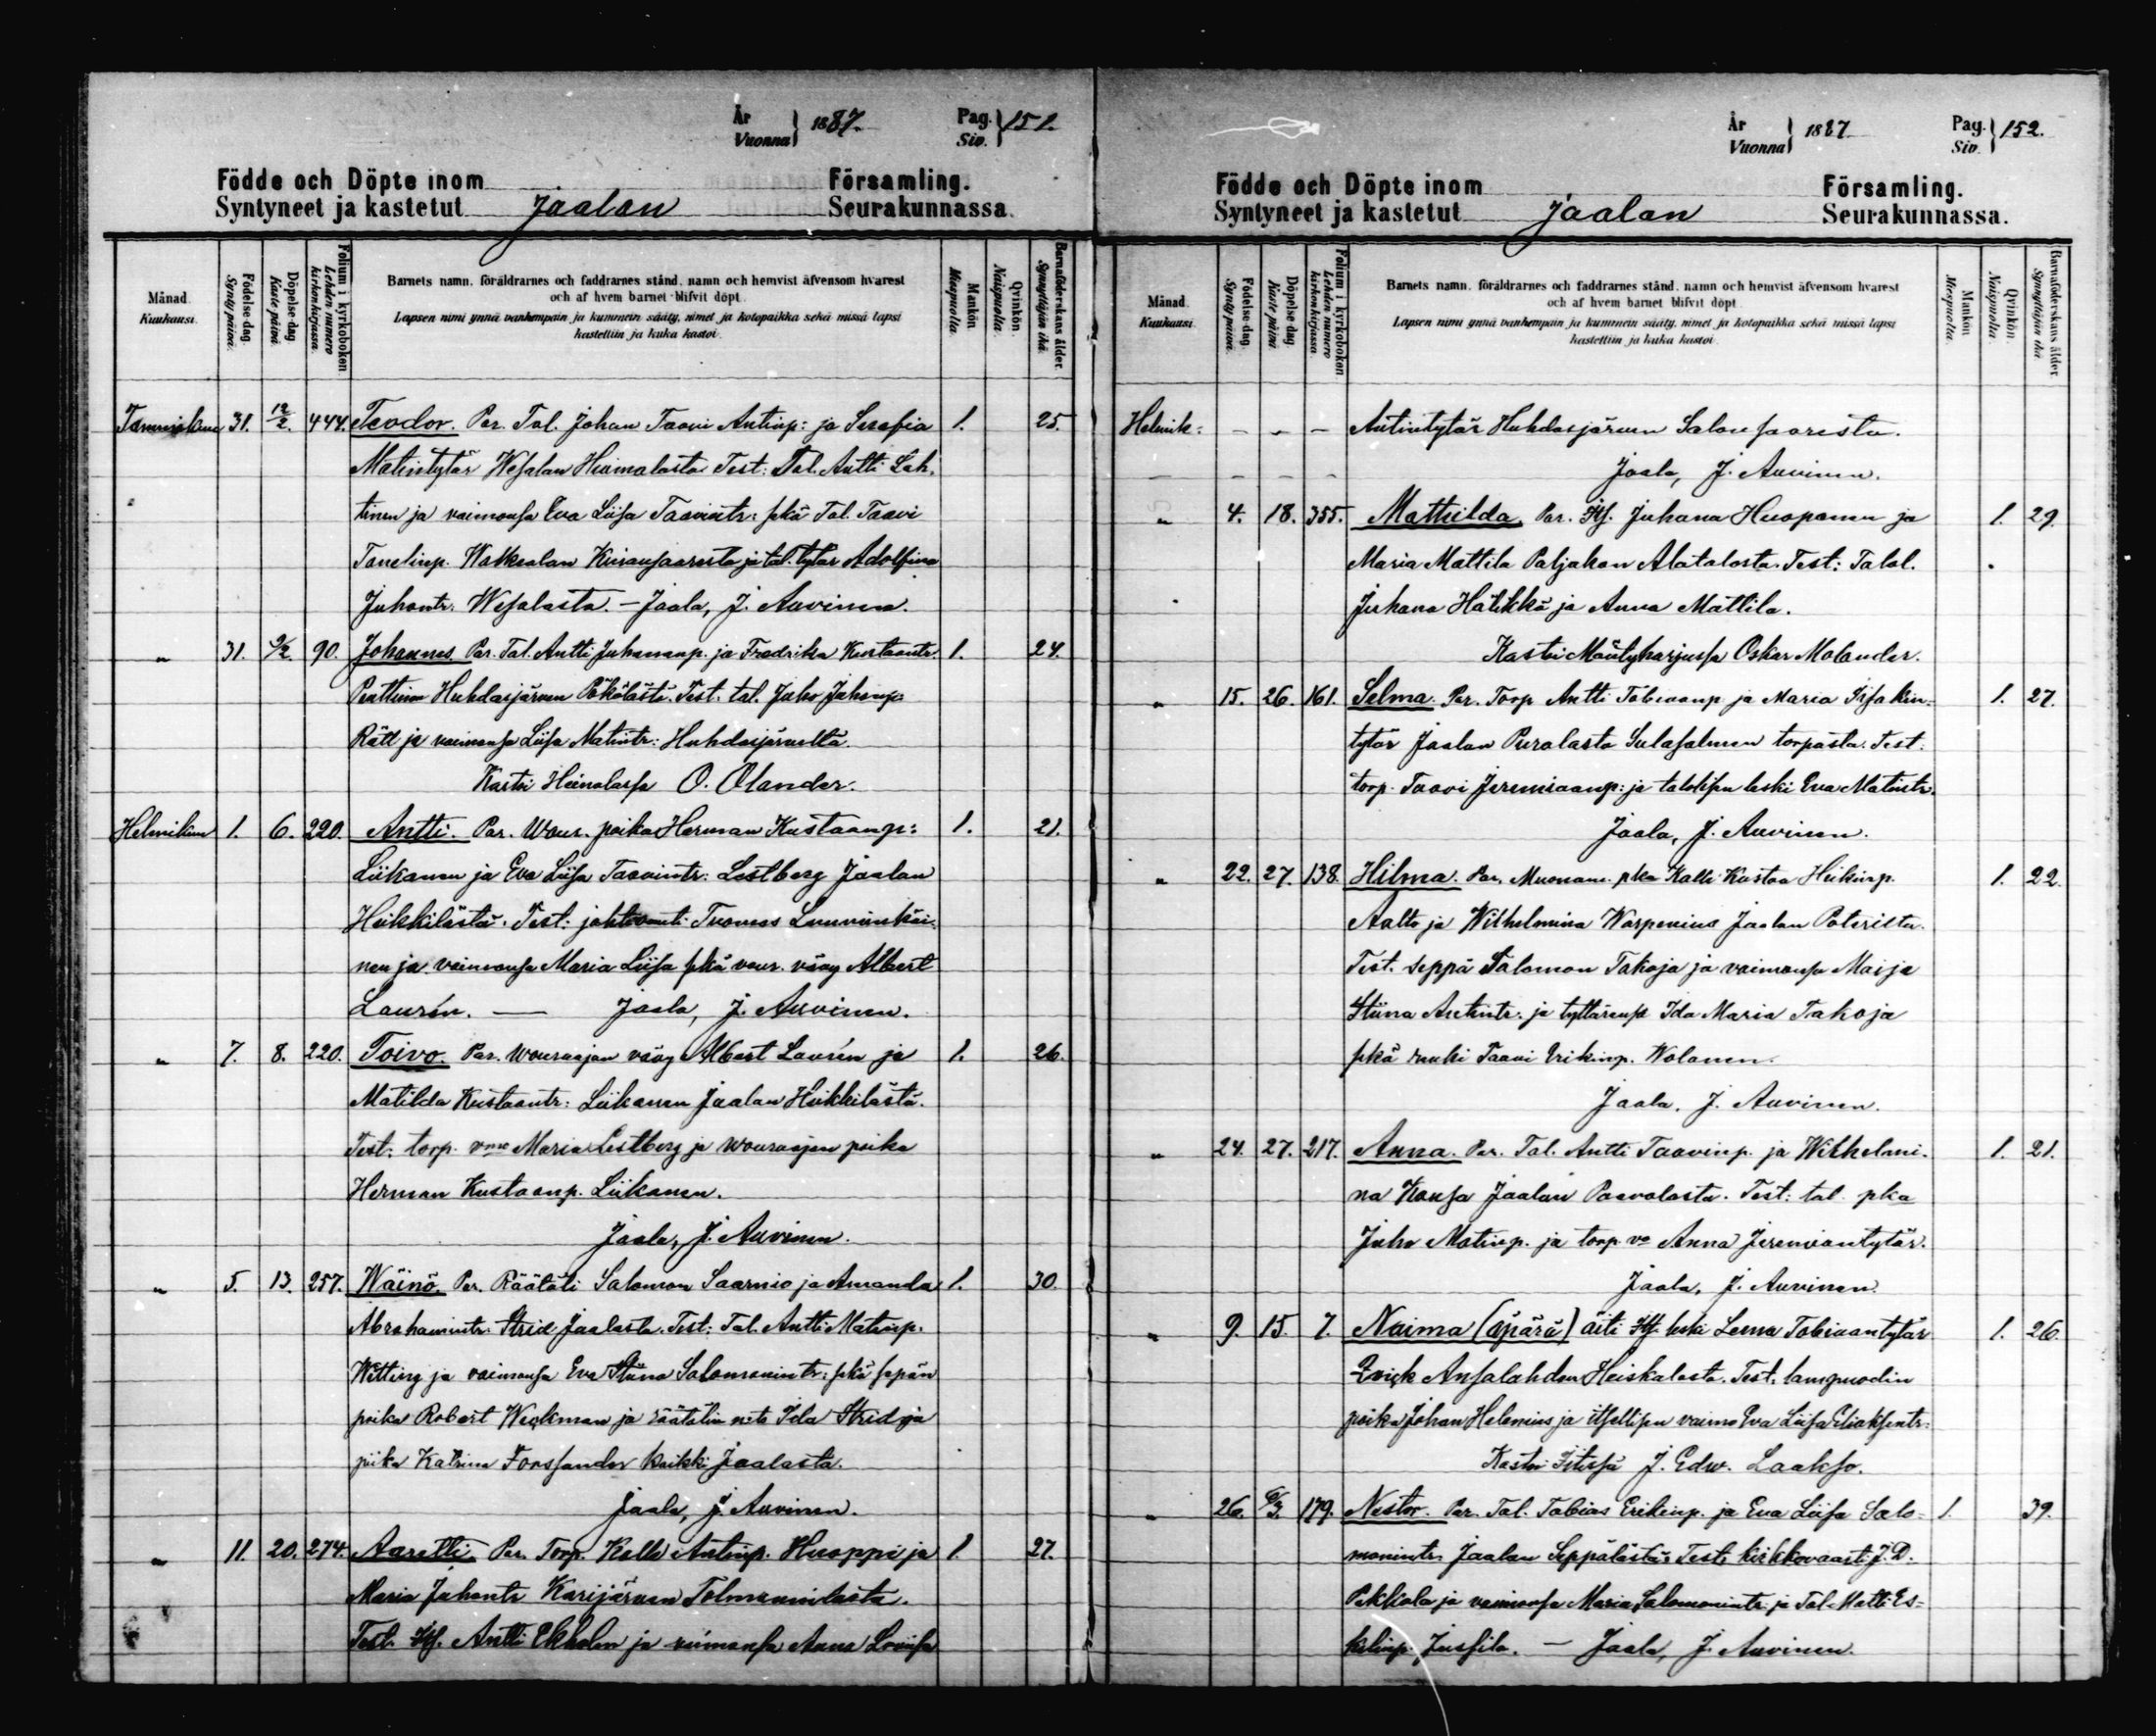 År Vuonna } 1887. Pag. Siv. } 151.
Födde och Döpte inom Församling.
Syntyneet ja kastetut Jaalan Seurakunnassa.
Månad. Kuukausi.
Födelse-dag. Synty päivä.
Döpelse-dag. Kaste päivä.
Folium i kyrkoboken Lehden numero kirkonkirjassa.
Barnets namn, föräldrarnes och faddrarnes stånd, namn och hemvist äfvensom hvarest
och af hvem barnet blifvit döpt.
Lapsen nimi ynnä vanhempain ja kummein sääty, nimet ja kotopaikka sekä missä lapsi
kastettiin ja kuka kastoi.
Mankön. Miespuolia.
Qvinkön. Naispuolia.
Barnaföderskans ålder. Synnyttäjän ikä.
Tammikuu 31. 12/2. 444. Teodor. Par. Tal. Johan Taavi Antinp: ja Serafia 1. 25.
Matintytär Wesalan Huimalasta Test: Tal. Antti Lah-
tinen ja vaimonsa Eva Liisa Taavintr: sekä Tal. Taavi
Tanelinp. Walkealan Kiisansaaresta ja tal. tytär Adolfina
Juhontr. Wesalasta. – Jaala, J. Auvinen.
" 31. 9/2. 90. Johannes. Par. Tal. Antti Juhananp. ja Fredrika Kustaantr. 1. 24.
Penttinen Huhdasjärven Pökölästä. Test. tal. Juho Juhonp:
Rätt ja vaimonsa Liisa Matintr: Huhdasjärveltä.
Kasti Heinolassa O. Olander.
Helmikuu 1. 6. 220. Antti. Par. Wour. poika Herman Kustaanp: 1. 21.
Liikanen ja Eva Liisa Taavintr: Lestberg Jaalan
Heikkilästä. Test: jahtivouti Tuomas Lumivuokäi-
nen ja vaimonsa Maria Liisa sekä vour. vävy Albert
Laurén. — Jaala, J. Auvinen.
" 7. 8. 220. Toivo. Par. Wouraajan vävy Albert Laurén ja 1. 26.
Matilda Kustaantr: Liikanen Jaalan Heikkilästä.
Test: torp. vmo Maria Lestberg ja wouraajan poika
Herman Kustaanp. Liikanen.
Jaala, J. Auvinen.
" 5. 13. 257. Wäinö. Par. Räätäli Salomon Saarnio ja Amanda 1. 30.
Abrahamintr. Strid Jaalasta. Test: Tal. Antti Matinp.
Witting ja vaimonsa Eva Stiina Salomonintr: sekä sepän
poika Robert Weckman ja räätälin neito Ida Strid ja
piika Katrina Forssander kaikki Jaalasta.
Jaala, J. Auvinen.
" 11. 20. 274. Aaretti. Par. Torp. Kalle Antinp. Huoppi ja 1. 27.
Maria Juhontr Karijärven Tolmunnilasta.
Test. Its. Antti Ekholm ja vaimonsa Anna Loviisa
År Vuonna } 1887 Pag. Siv. } 152.
Födde och Döpte inom Församling.
Syntyneet ja kastetut Jaalan Seurakunnassa.
Månad. Kuukausi.
Födelse-dag. Synty päivä.
Döpelse-dag. Kaste päivä.
Folium i kyrkoboken Lehden numero kirkonkirjassa.
Barnets namn, föräldrarnes och faddrarnes stånd, namn och hemvist äfvensom hvarest
och af hvem barnet blifvit döpt.
Lapsen nimi ynnä vanhempain ja kummein sääty, nimet ja kotopaikka sekä missä lapsi
kastettiin ja kuka kastoi.
Mankön. Miespuolia.
Qvinkön. Naispuolia.
Barnaföderskans ålder. Synnyttäjän ikä.
Helmik: – – – Antintytär Huhdasjärven Salonsaaresta.
– – – – Jaala, J. Auvinen.
" 4. 18. 355. Mathilda. Par. Its. Juhana Huopanen ja 1. 29.
Maria Mattila Paljakan Alatalosta. Test: Talol.
Juhana Hätikkä ja Anna Mattila.
Kasti Mäntyharjussa Oskar Molander.
" 15. 26. 161. Selma. Par. Torp Antti Tobiaanp ja Maria Iisakin- 1. 27.
tytär Jaalan Puralasta Sulasalmen torpasta. Test:
torp. Taavi Jeremiaanp: ja talolisen leski Eva Matintr.
Jaala, J. Auvinen.
" 22. 27. 138. Hilma. Par. Muonam. pka Kalle Kustaa Heikinp. 1. 22.
Aalto ja Wilhelmina Warpenius Jaalan Paterilta.
Test. seppä Salomon Takoja ja vaimonsa Maija
Stiina Antintr. ja tyttärensä Ida Maria Takoja
sekä renki Taavi Erikinp. Wolanen.
Jaala, J. Auvinen.
" 24. 27. 217. Anna. Par. Tal. Antti Taavinp. ja Wilhelmi- 1. 21.
na Kausa Jaalan Paavolasta. Test: tal. pka
Juho Matinp. ja torp. vo Anna Jeremiantytär.
Jaala, J. Auvinen.
" 9. 15. 7. Naima (äpärä) äiti Its. leski Leena Tobiaantytär 1. 26.
Qvick Ansalahden Heiskalasta. Test: lampuodin
poika Johan Helenius ja itsellisen vaimo Eva Liisa Eliaksentr:
Kasti Iitissä J. Edw. Laakso.
" 26. 6/3. 179. Nestor. Par. Tal. Tobias Erikinp. ja Eva Liisa Salo- 1. 39.
monintr. Jaalan Seppälästä. Test: kirkkovaarti J. D.
Pekkola ja vaimonsa Maria Salomonintr: ja Tal. Matti Es-
kelinp. Jussila. – Jaala, J. Auvinen.